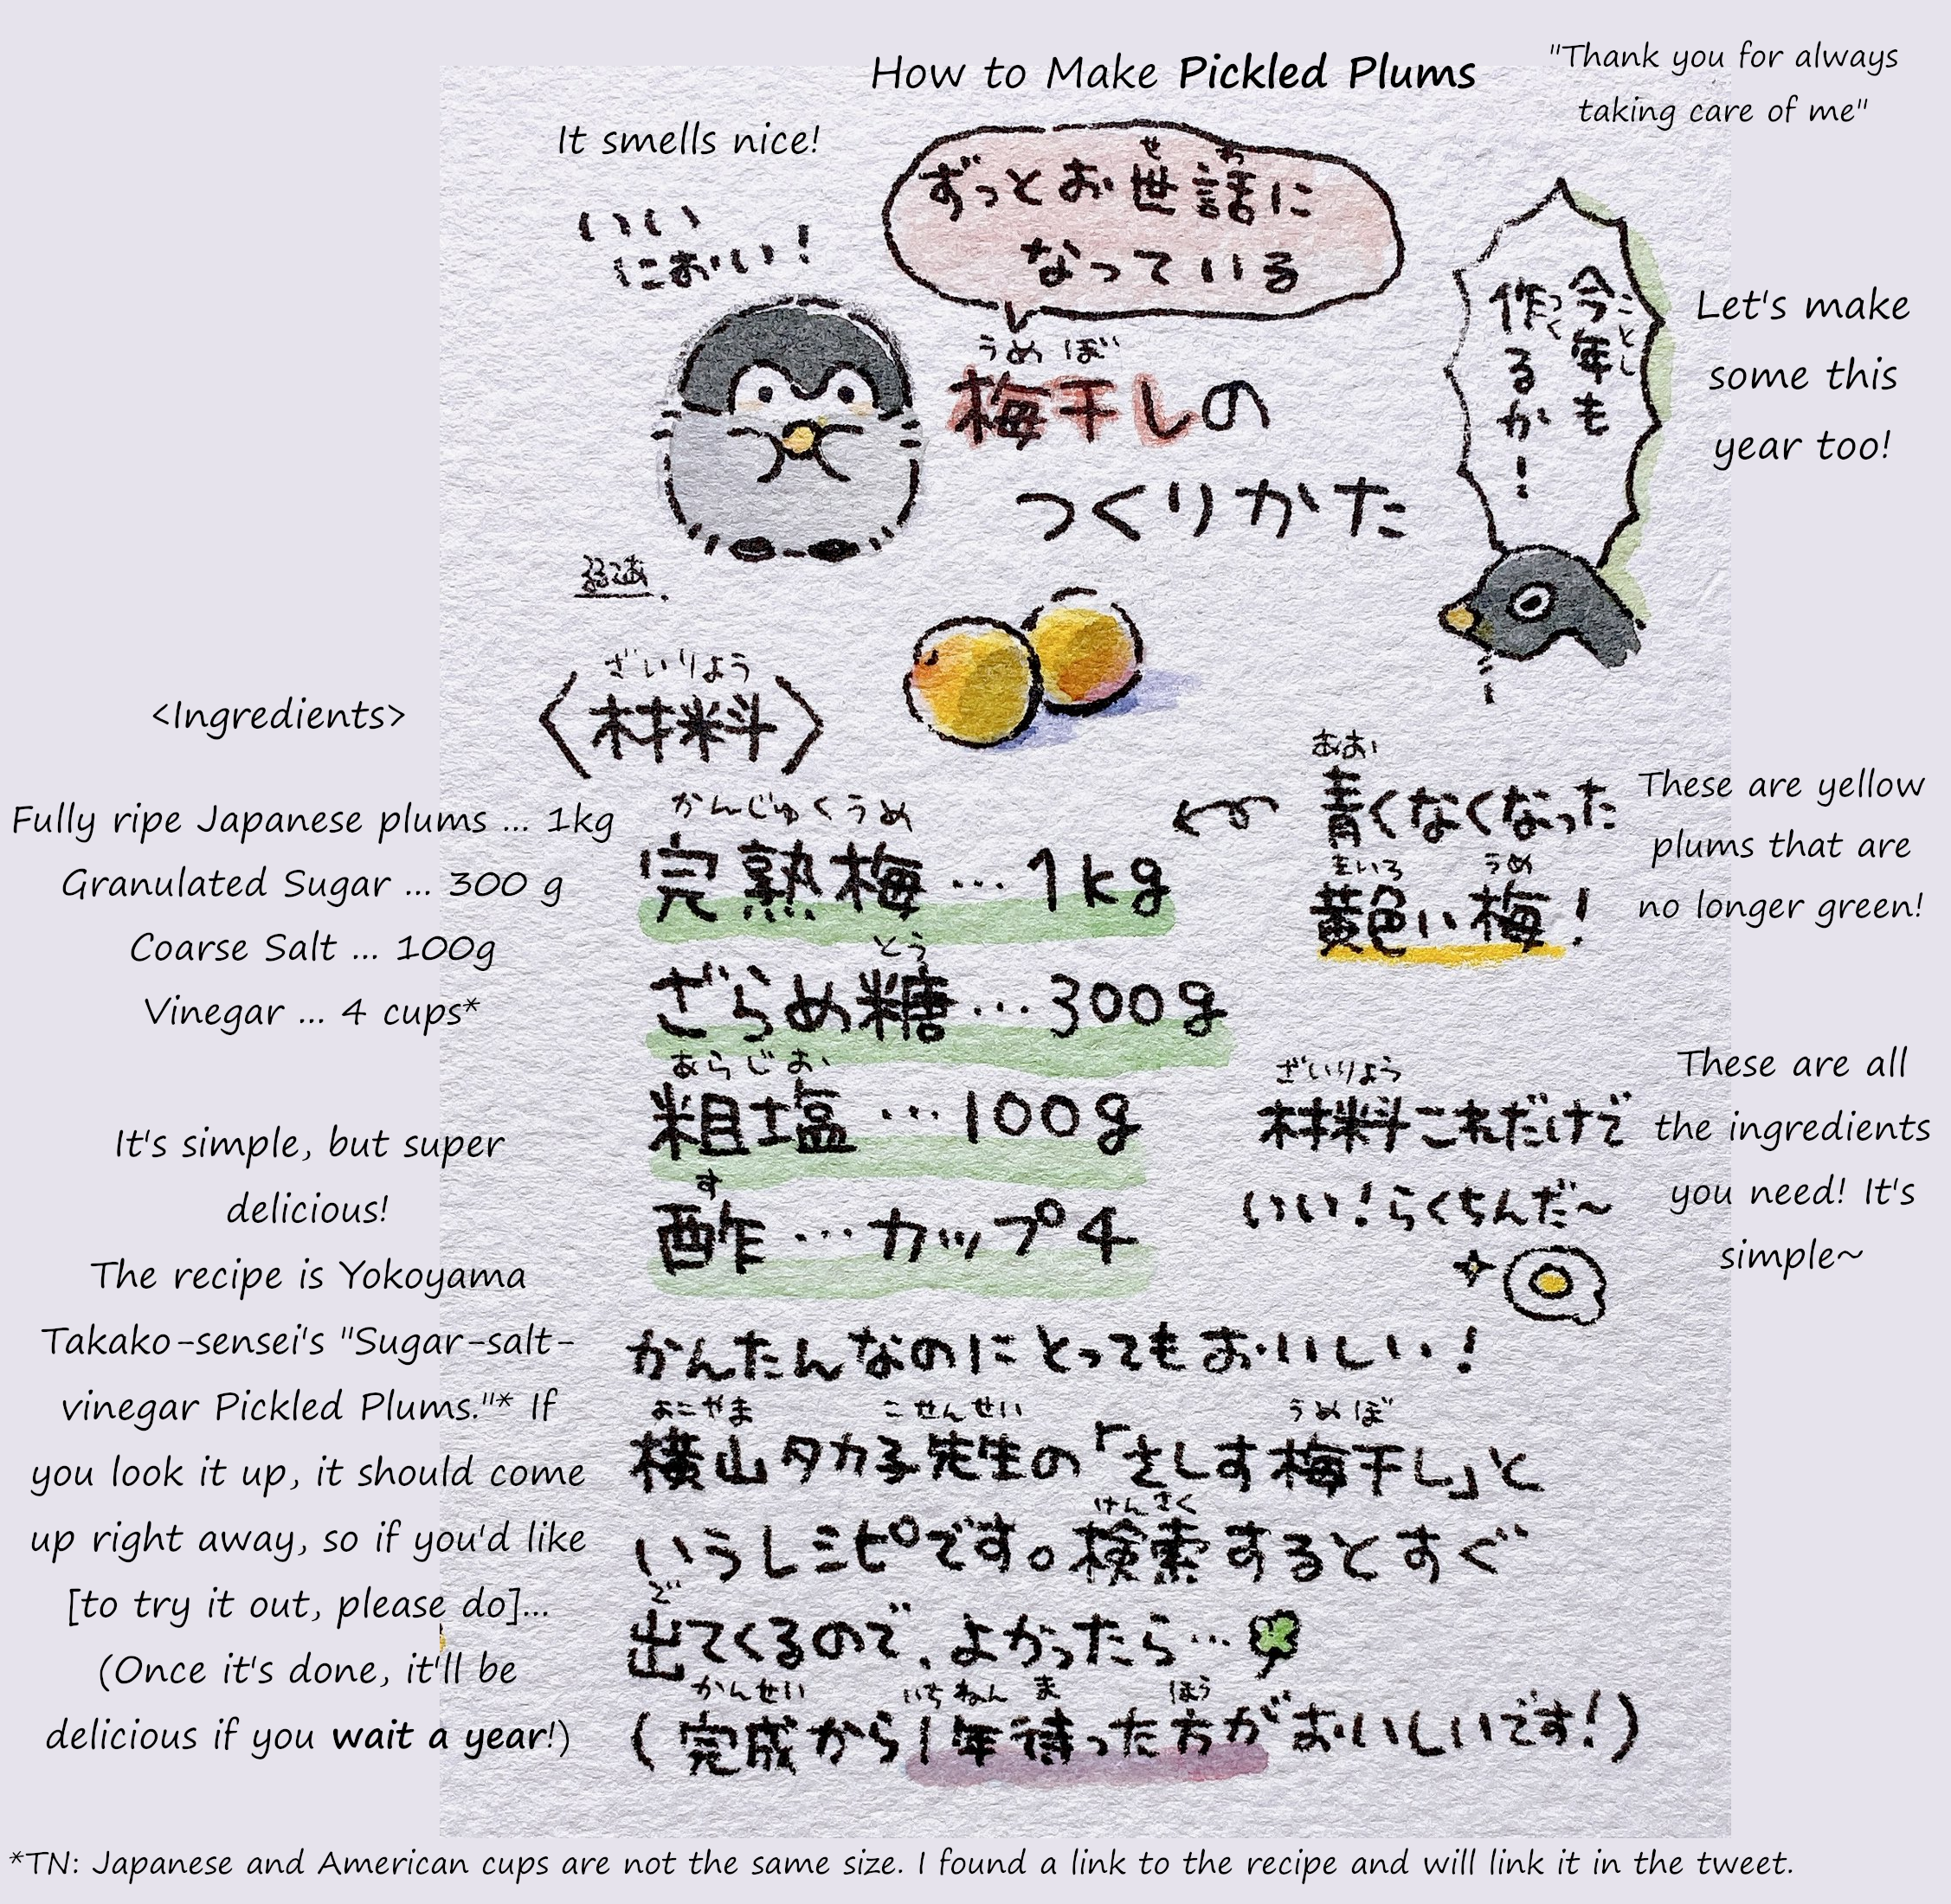 How to Make Pickled Plums
"Thank you for always
taking care of me"
It smells nice!
ずっとお世話に
せ わ
なっている
いい
におい！
今年も
ことし
作るか！
つく
Let's make
some this
year too!
うめ ぼ
梅干しの
つくりかた
るるてあ
<Ingredients>
ざいりょう
〈材料〉
Fully ripe Japanese plums ... 1kg
Granulated Sugar ... 300 g
Coarse Salt ... 100g
Vinegar ... 4 cups*
かんじゅくうめ
完熟梅…1kg
とう
ざらめ糖…300g
あらじお
粗塩…100g
す
酢…カップ4
あお
青くなくなった
きいろ うめ
黄色い梅！
These are yellow
plums that are
no longer green!
ざいりょう
材料これだけで
いい！らくちんだ～
These are all
the ingredients
you need! It's
simple~
It's simple, but super
delicious!
The recipe is Yokoyama
Takako-sensei's "Sugar-salt-
vinegar Pickled Plums."* If
you look it up, it should come
up right away, so if you'd like
[to try it out, please do]...
(Once it's done, it'll be
delicious if you wait a year!)
かんたんなのにとってもおいしい！
よこやま こせんせい うめ ぼ
横山タカ子先生の「さしす梅干し」と
けんさく
いうレシピです。検索するとすぐ
で
出てくるので、よかったら…
かんせい いちねん ま ほう
(完成から1年待った方がおいしいです！)
*TN: Japanese and American cups are not the same size. I found a link to the recipe and will link it in the tweet.